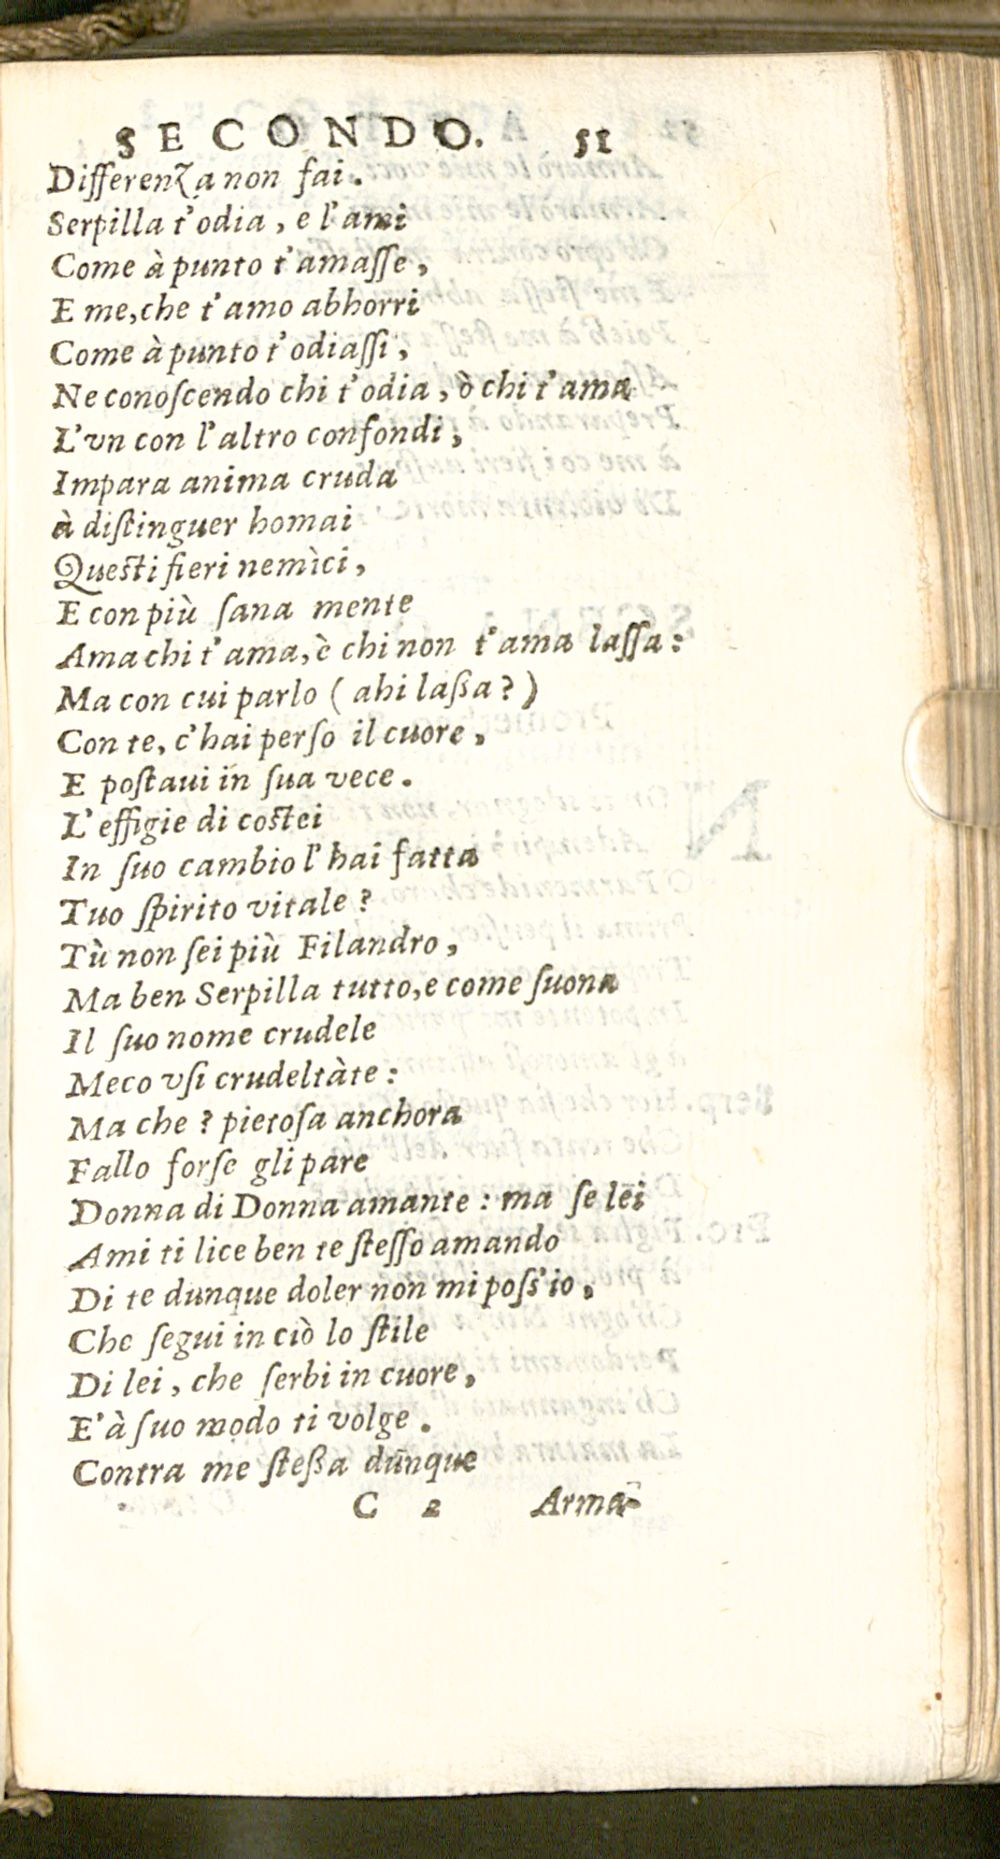 SECONDO. 51
Differenza non fai.
Serpilla t'odia, e l'ami
Come à punto t'amaſſe,
E me, che t'amo abhorri
Come à punto t'odiaſſi,
Ne conoſcendo chi t'odia, ò chi t'ama
L'vn con l'altro confondi,
Impara anima cruda
à diſtinguer homai
Queſti fieri nemìci,
E con più ſana mente
Ama chi t'ama, è chi non t'ama laſſa:
Ma con cui parlo (ahi laßa?)
Con te, c'hai perſo il cuore,
E poſtaui in ſua vece.
L'effigie di coſtei
In ſuo cambio l'hai fatta
Tuo ſpirito vitale?
Tù non ſei più Filandro,
Ma ben Serpilla tutto, e come ſuona
Il ſuo nome crudele
Meco vſi crudeltàte:
Ma che? pietoſa anchora
Fallo forſe gli pare
Donna di Donna amante: ma ſe lei
Ami ti lice ben te ſteſſo amando
Di te dunque doler non mi poſſ'io,
Che ſegui in ciò lo ſtile
Di lei, che ſerbi in cuore,
E'à ſuo modo ti volge.
Contra me ſteßa dunque
C 2 Arma-